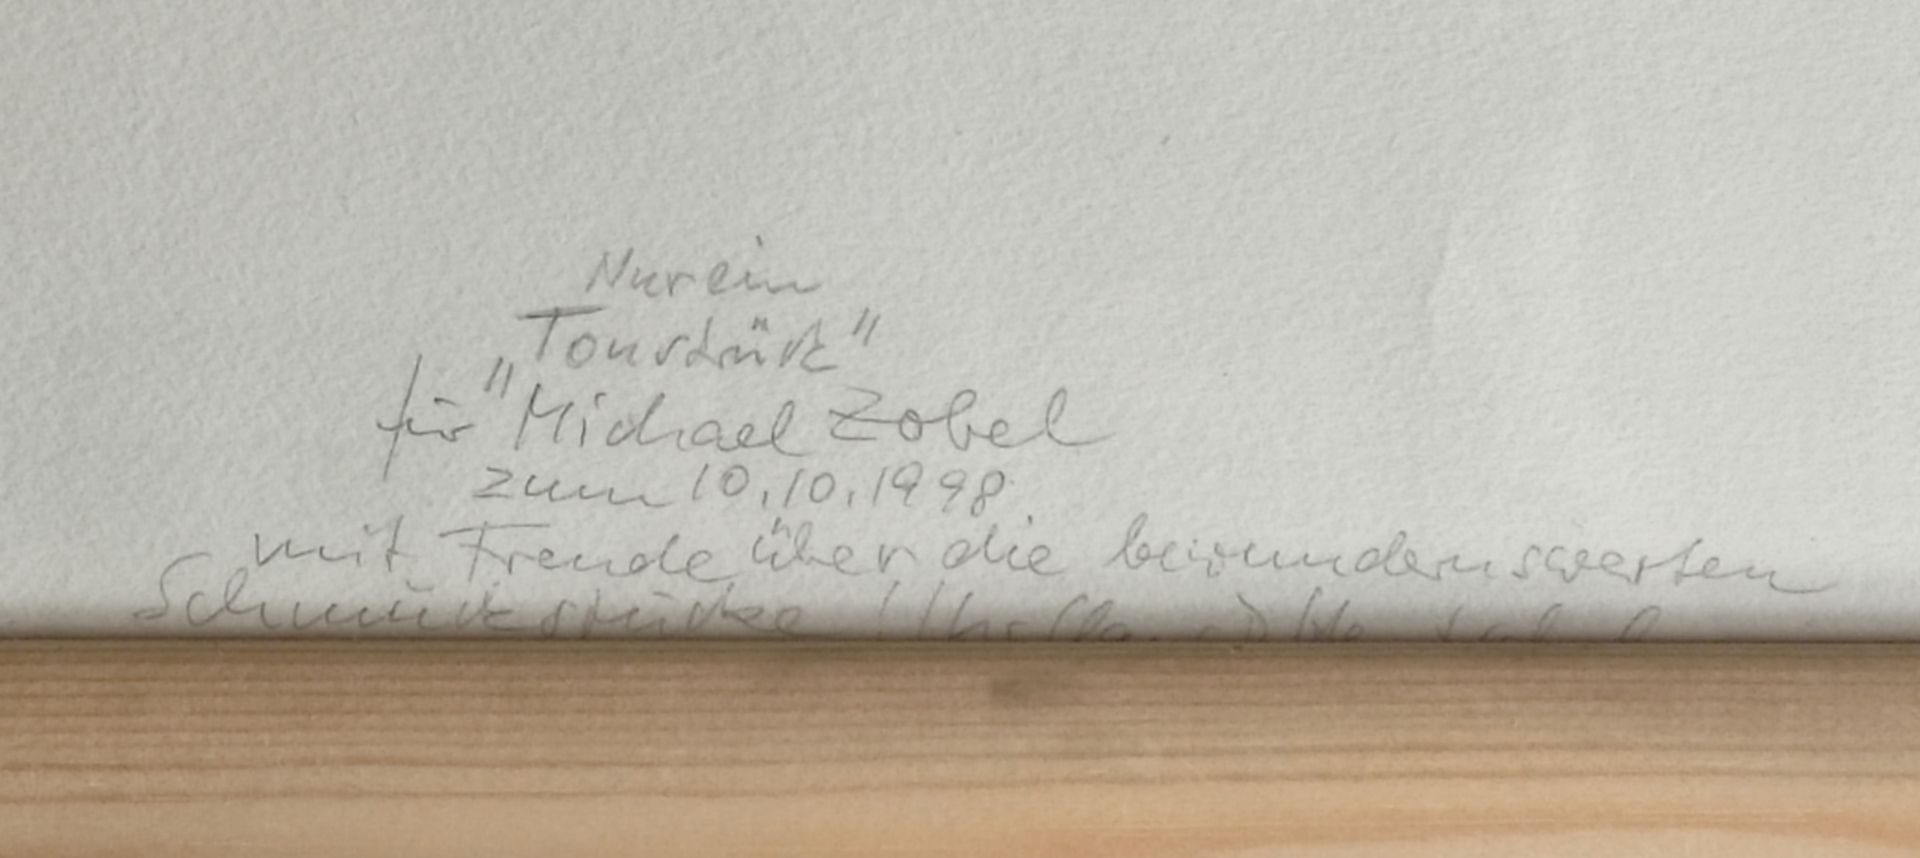 Nur ein
Tonstück"
für "Michael Zobel
zum 10.10.1998
mit Freude über die bewundernswerten
Schmuckstücke !